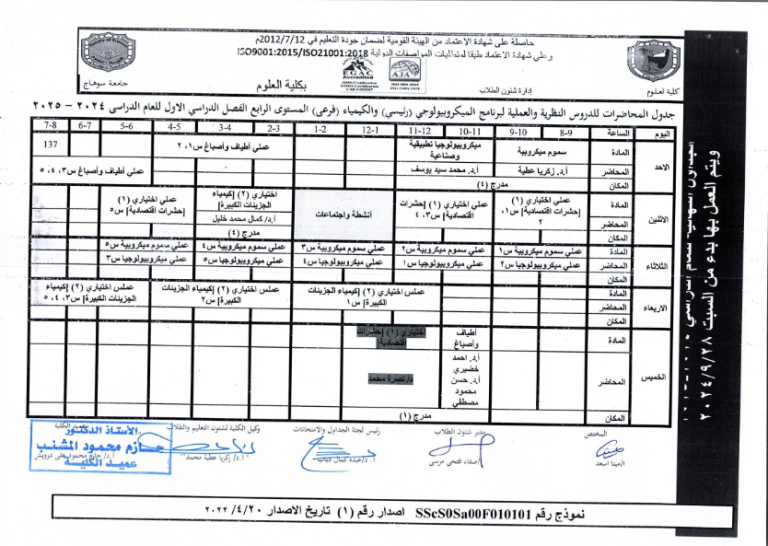 حاصلة على شهادة الاعتماد من الهيئة القومية لضمان جودة التعليم في 2012/7/12م
وعلى شهادة الاعتماد طبقا لمتطلبات المواصفات الدولية ISO9001:2015/ISO21001:2018
EGAC
AJA
كلية لعلوم
إدارة شئون الطلاب
بكلية العلوم
جامعة سوهاج
جدول المحاضرات للدروس النظرية والعملية لبرنامج الميكروبيولوجي (رئيسي) والكيمياء (فرعى) المستوى الرابع الفصل الدراسي الاول للعام الدراسى ٢٠٢٤ - ٢٠٢٥
اليوم الساعة 8-9 9-10 10-11 11-12 12-1 1-2 2-3 3-4 4-5 5-6 6-7 7-8
الاحد
المادة سموم ميكروبية ميكروبيولوجيا تطبيقية وصناعية عملي أطياف وأصباغ س١، ٢ 137
المحاضر أ.د. زكريا عطية أ.د. محمد سيد يوسف عملي أطياف وأصباغ س٣، ٤، ٥
المكان مدرج (٤)
الاثنين
المادة عملي اختياري (١) [حشرات اقتصادية] س١، ٢ عملي اختياري (١) [حشرات اقتصادية] س٣، ٤ أنشطة واجتماعات اختياري (٢) [كيمياء الجزيئات الكبيرة] عملي اختياري (١) [حشرات اقتصادية] س٥
المحاضر أ.د/ كمال محمد خليل
المكان مدرج (٤)
الثلاثاء
المادة عملي سموم ميكروبية س١ عملي سموم ميكروبية س٢ عملي سموم ميكروبية س٣ عملي سموم ميكروبية س٤ عملي سموم ميكروبية س٥
المحاضر عملي ميكروبيولوجيا س٢ عملي ميكروبيولوجيا س١ عملي ميكروبيولوجيا س٤ عملي ميكروبيولوجيا س٥ عملي ميكروبيولوجيا س٣
المكان
الاربعاء
المادة عملس اختياري (٢) [كيمياء الجزيئات الكبيرة] س١ عملس اختياري (٢) [كيمياء الجزيئات الكبيرة] س٢ عملس اختياري (٢) [كيمياء الجزيئات الكبيرة] س٣، ٤، ٥
المحاضر
المكان
الخميس
المادة أطياف وأصباغ اختياري (١) [حشرات اقتصادية]
المحاضر أ.د. احمد خضيري أ.د. حسن محمود مصطفي د/ نصرة محمد
المكان مدرج (١)
المختص
مدير شئون الطلاب
رئيس لجنة الجداول والامتحانات
وكيل الكلية لشئون التعليم والطلاب
الكلية
أ/مينا اسعد
أ/صفاء فتحي مرسى
أ.د/عبده كمال دياب
أ.د/ زكريا عطية محمد
أ.د/ حازم محمود على درويش
الأستاذ الدكتور
حازم محمود المشنب
عميد الكلية
نموذج رقم SScS0Sa00F010101 اصدار رقم (١) تاريخ الاصدار ٢٠/٤/٢٠٢٢
ويتم العمل بها بدء من السبت ٢٠٢٤/٩/٢٨